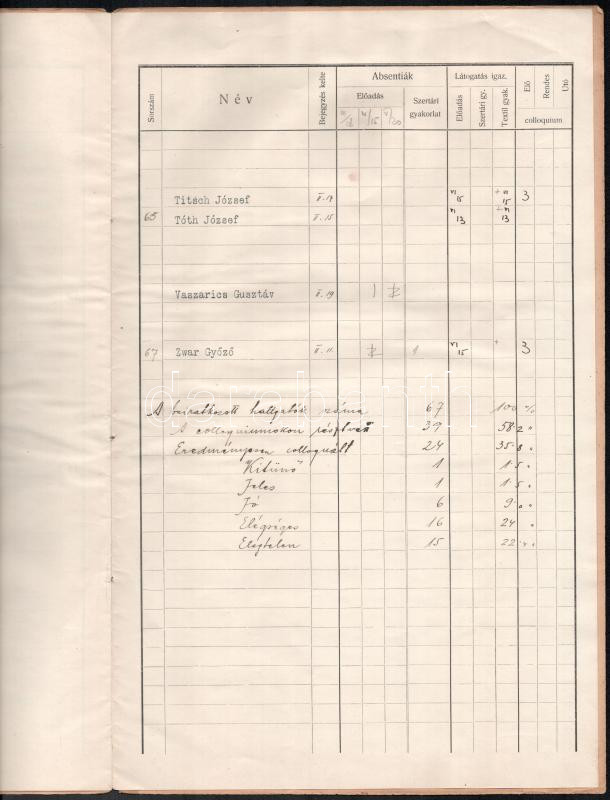 Sorszám Név Bejegyzés kelte Absentiák Látogatás igaz. Elő Rendes Utó
Előadás Szertári gyakorlat Előadás Szertári gy. Textil gyak. colloquium
Titsch József II.17 VI 15 + VI 15 3
65 Tóth József II.15 VI 13 + VI 13
Vaszarics Gusztáv II.19
67 Zwar Győző II.11. 1 VI 15 + 3
A beiratkozott hallgatók száma 67 100 %
A colloquiumokon résztvett 39 58.2 "
Eredményesen colloquált 24 35.8 "
Kitünő 1 1.5 "
Jeles 1 1.5 "
Jó 6 9.0 "
Elégséges 16 24 "
Elégtelen 15 22.4 "
darabanth